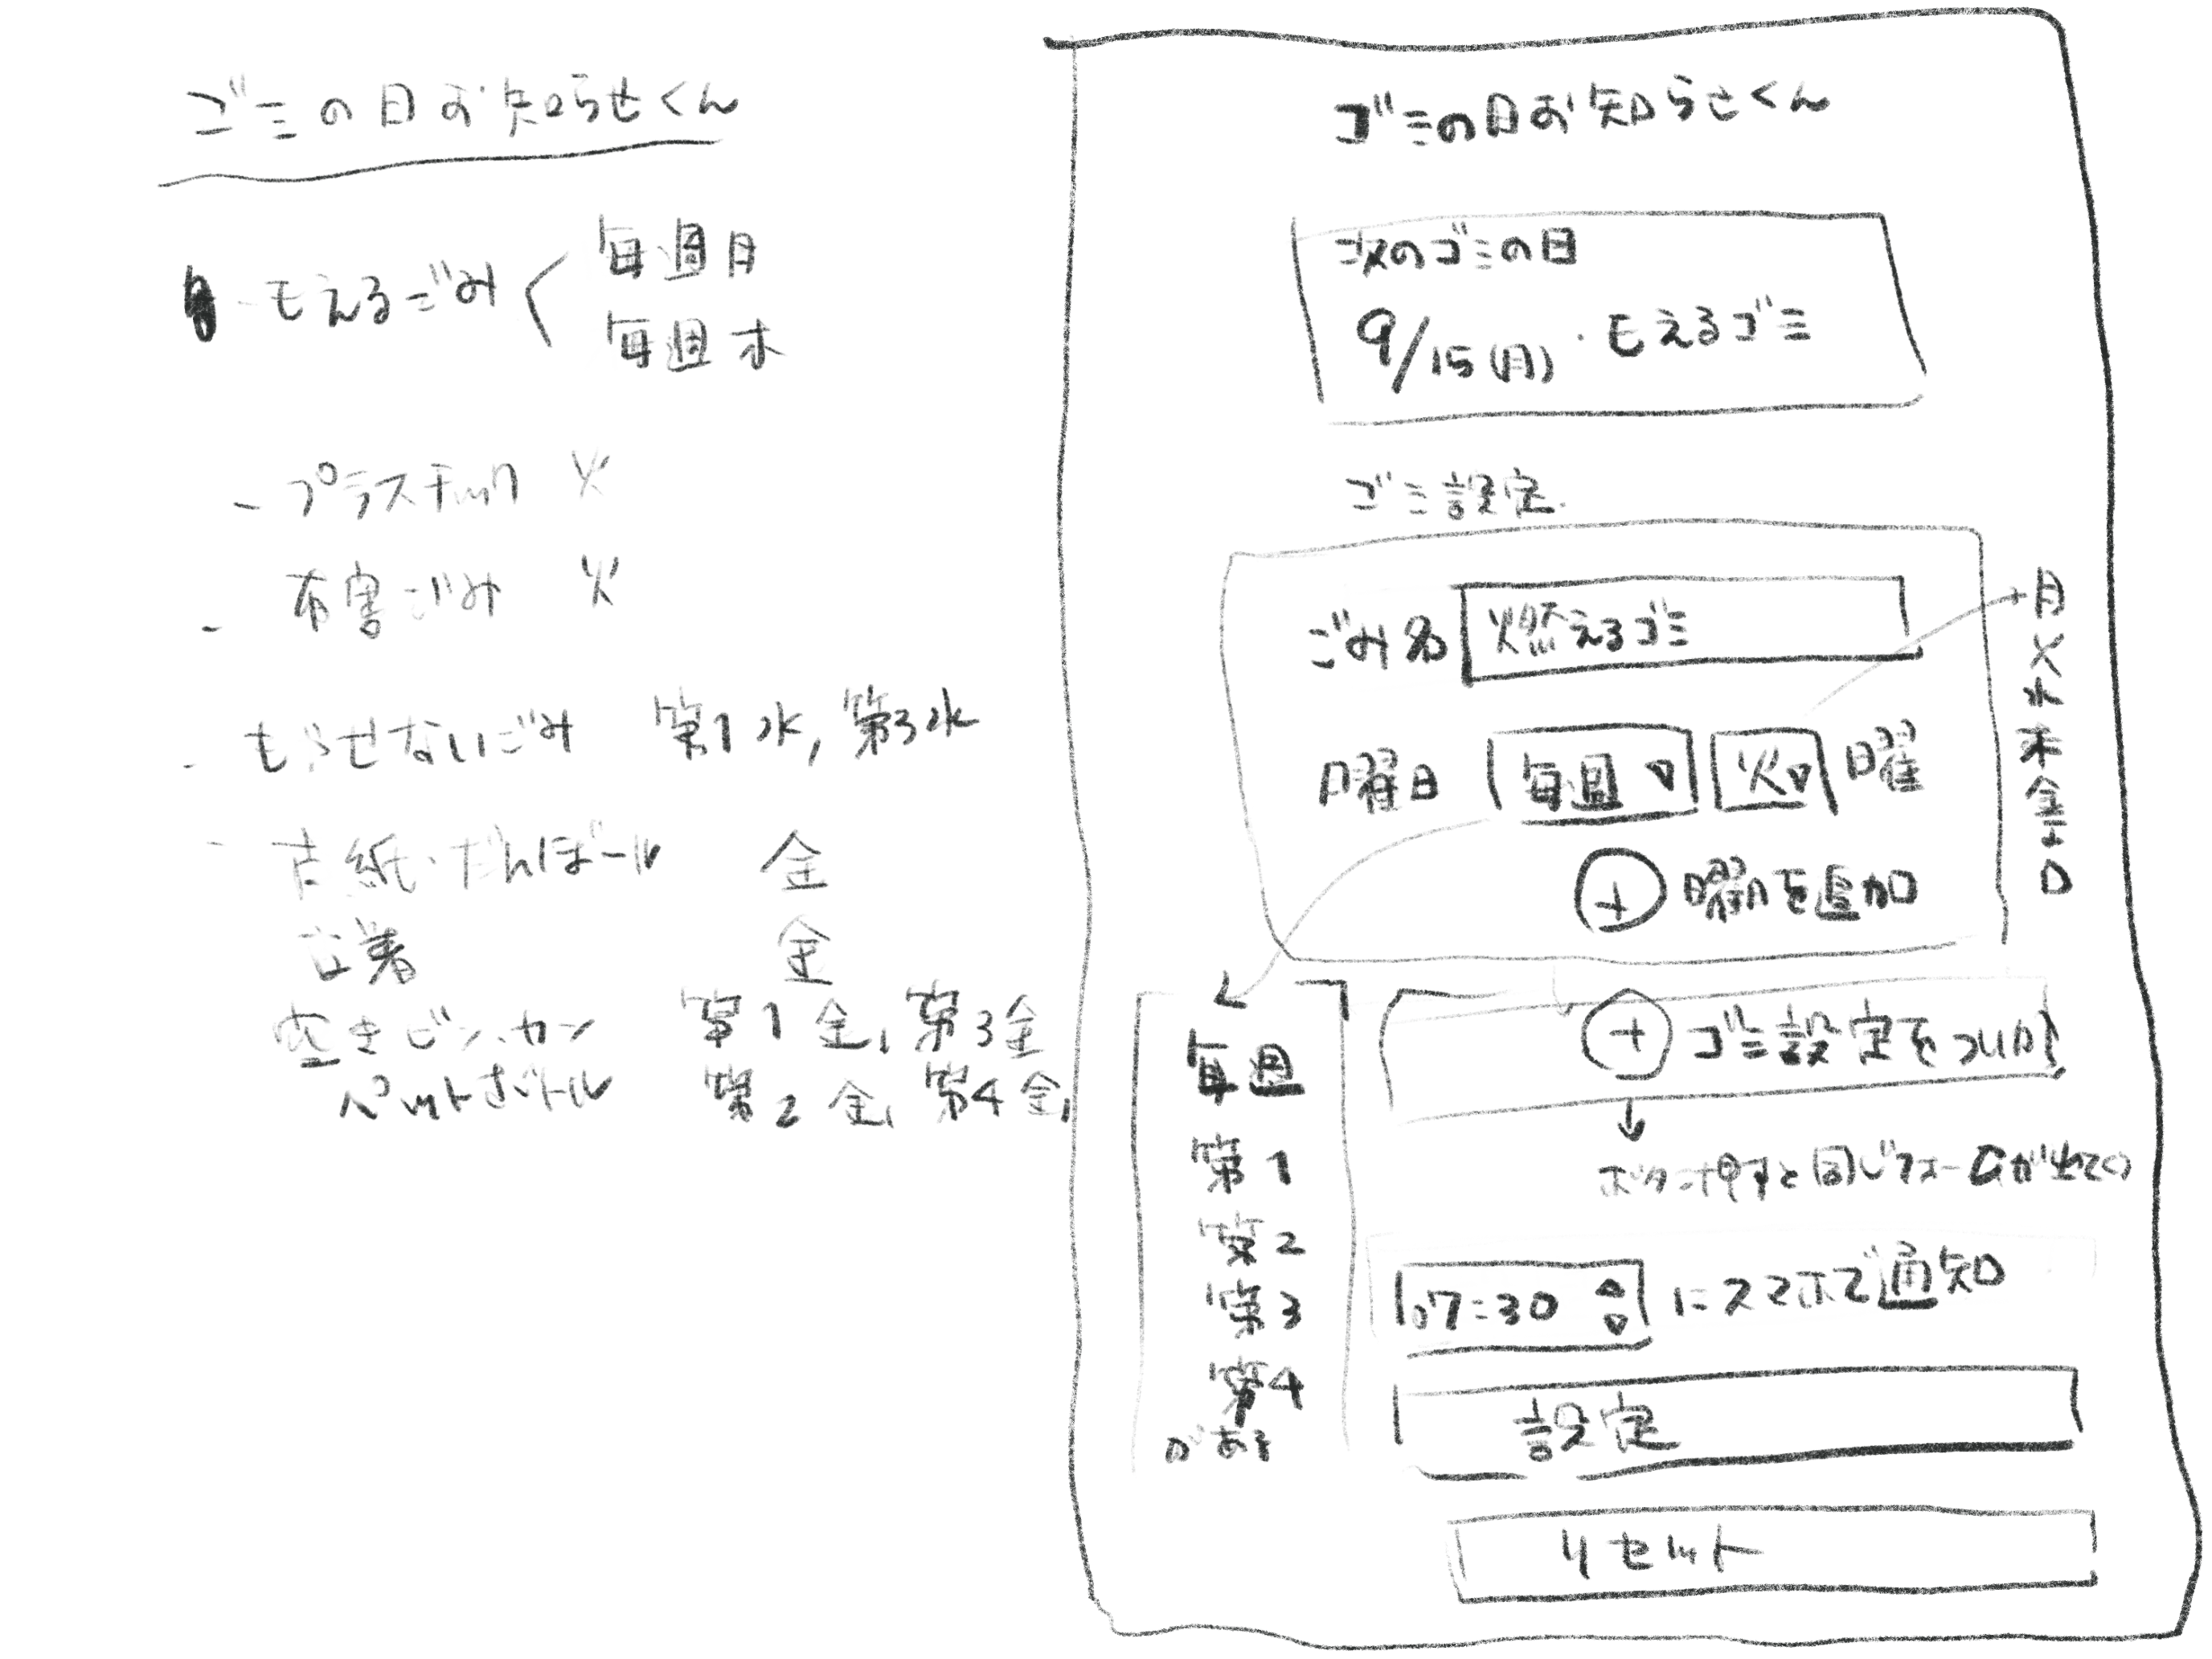 ゴミの日お知らせくん
・もえるごみ 毎週月
毎週木
- プラスチック 火
- 有害ごみ 火
- もやせないごみ 第1水, 第3水
- 古紙・だんぼール 金
古着 金
空きビン、カン 第1金, 第3金
ペットボトル 第2金, 第4金,
ゴミの日お知らせくん
次のゴミの日
9/15(月)・もえるゴミ
ゴミ設定
ごみ名 燃えるゴミ
曜日 毎週 ▽ 火▽ 曜
+ 曜日を追加
月
火
水
木
金
土
日
+ ゴミ設定をついか
ボタン押すと同じフォームが出てくる
毎週
第1
第2
第3
第4
がある
07:30 にスマホで通知
設定
リセット